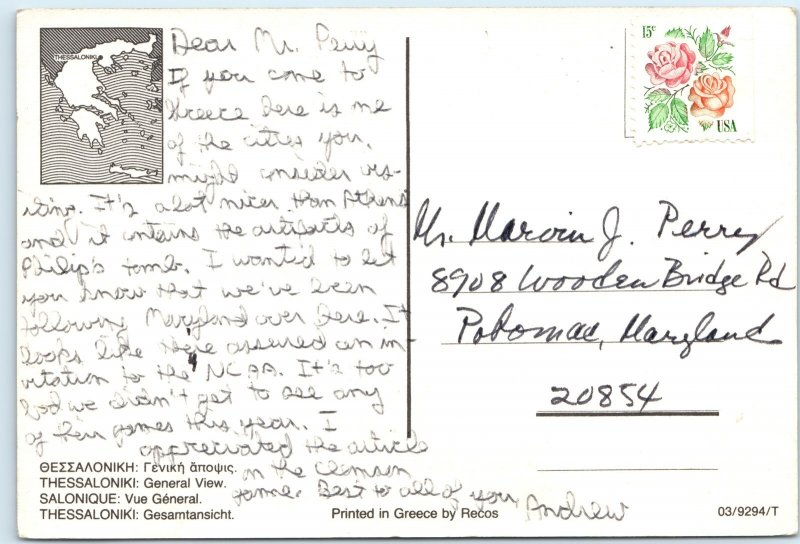 THESSALONIKI
Dear Mr. Perry
If you come to
Greece here is one
of the cities you
might consider vis-
iting. It's a lot nicer than Athens
and it contains the artifacts of
Philip's tomb. I wanted to let
you know that we've been
following Maryland over here. It
looks like they're assured an in-
vitation to the NCAA. It's too
bad we didn't get to see any
of their games this year. I
appreciated the article
on the Clemson
game. Best to all of you,
Andrew
15c
USA
Mr. Marvin J. Perry
8908 Wooden Bridge Rd
Potomac, Maryland
20854
ΘΕΣΣΑΛΟΝΙΚΗ: Γενική άποψις.
THESSALONIKI: General View.
SALONIQUE: Vue Général.
THESSALONIKI: Gesamtansicht.
Printed in Greece by Recos
03/9294/T